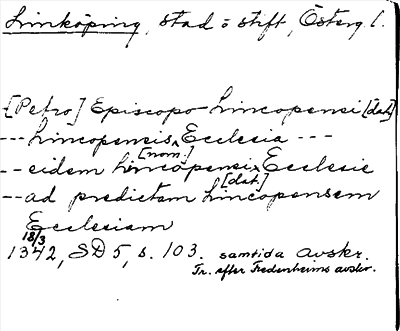 Linköping, stad o stift, Österg l.
[Petro] Episcopo Lincopensi [dat.]
--- Lincopensis [nom.] Ecclesia ---
-- eidem Lincopensi [dat.] Ecclesie
-- ad predictam Lincopensem
Ecclesiam
18/3
1342, SD 5, s. 103. samtida avskr.
Tr. efter Fredenheims avskr.